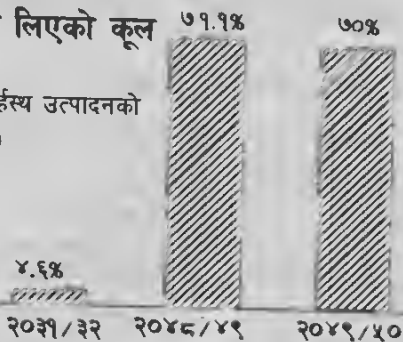 लिएको कूल
र्हस्थ उत्पादनको
७१.१%
७०%
४.६%
२०३१/३२ २०४८/४९ २०४९/५०